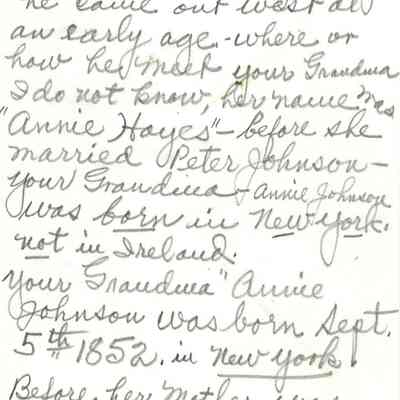 he came out west at
an early age - where or
how he meet your Grandma
I do not know, her name was
"Annie Hayes" - before she
married Peter Johnson -
your Grandma - Annie Johnson
was born in New York.
not in Ireland.
your Grandma "Annie
Johnson was born Sept.
5th 1852. in New York.
Before her Mother was